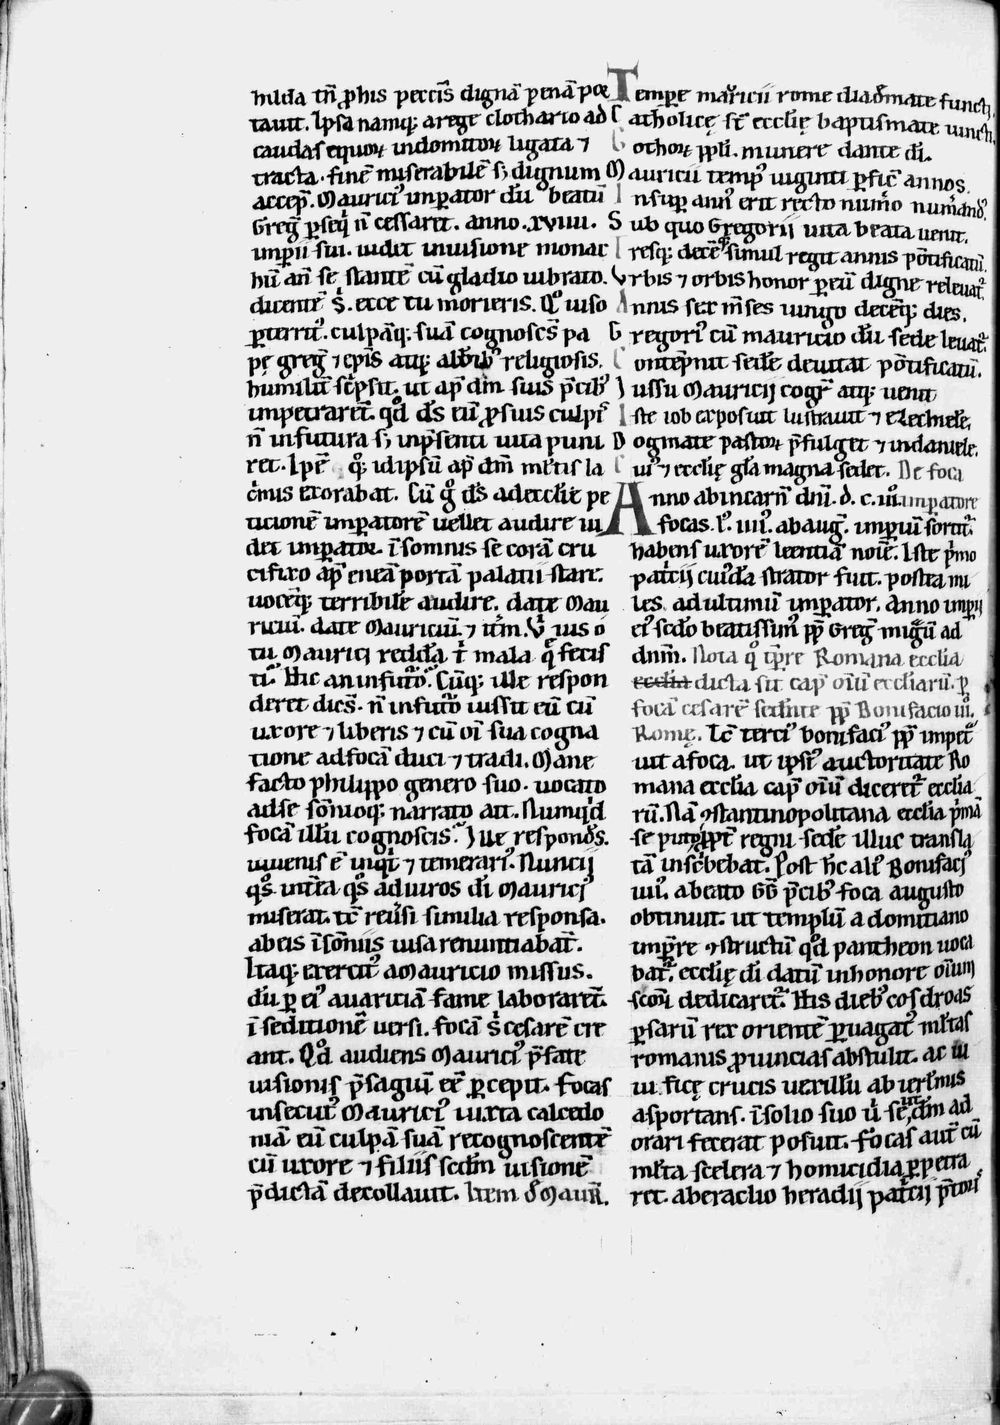 hilda tn̄ ꝓhis peccīs dignā penā por
tauit. Ipsa namq; a rege clothario ad
caudas equoꝝ indomitoꝝ ligata ⁊
tracta. finē miserabilē sȝ dignum
accep̄. Mauriciꝰ imꝑator dū beatū
Greḡ ꝑseq̇ n̄ cessaret. anno .xviiii.
imꝑii sui. uidit in uisione monac
hū an̄ se stantē cū gladio uibrato.
dicentē s̄. ecce tu morieris. Qͦ uiso
ꝑterritꝰ. culpāq; suā cognoscēs pa
pę greḡ ⁊ ep̄is atq; aliis religiosis.
humilit̄ sc̄psit. ut ap̄ dm̄ suis p̄cibꝰ
impetraret. qd̄ ds̄ eū ꝓrsus culpis
n̄ in futura sȝ in p̄senti uita puni
ret. Ipse qͦ; id ipsū ap̄ dm̄ ml̄tis la
c̄mis exorabat. Cū gͦ ds̄ ad eccl̄ie pe
ticionē imꝑatorē uellet audire ui
det imꝑator. ī somnis se corā cru
cifixo ap̄ eneā portā palatii stare.
uocēq; terribilē audire. date Mau
riciū. date Mauriciū. ⁊ itm̄. Vis ō
tu Maurici reddā t̄ mala q̄ fecis
ti. Hic an in futͦo. Cūq; ille respon
deret dicēs. n̄ in futͦo iussit eū cū
uxore ⁊ liberis ⁊ cū oī sua cogna
tione ad focā duci ⁊ tradi. Mane
facto philippo genero suo. uocato
ad se sōnioq; narrato ait. Numqd̄
focā illū cognoscis. Ille respondēs.
iuuenis ē inq̇t ⁊ temerariꝰ. Nuncij
qͦs int̄ea qͦs ad uiros di Maurici
miserat. tc̄ reūsi similia responsa.
ab eis ī sōniis uisa renuntiabat̄.
Itaq; exercitꝰ a Mauricio missus.
dū ꝑ eiꝰ auariciā fame laboraret.
ī seditionē uersi. focā s̄ cesarē cre
ant. Qd̄ audiens Mauriciꝰ p̄fate
uisionis p̄sagiū eē ꝑcepit. focas
insecutꝰ Mauriciꝰ iuxta calcedo
niā eū culpā suā recognoscentē
cū uxore ⁊ filiis scdm̄ uisionē
p̄dictā decollauit. Item d̄ Mauī.
Tempe mauricii rome diadm̄ate functi
Catholicę st̄ ecclīę baptismate iuncti
Gothoꝝ ppli. munere dante di.
Mauricii tempꝰ uiginti ꝑfic̄ annos.
Insuꝑ annꝰ erit recto numͦo numandꝰ.
Sub quo Gregorii uita beata uenit.
Iresq; decē simul regit annis pōtificatū.
Vrbis ⁊ orbis honor ꝑ eū digne releuat̄.
Annis sex m̄ses iungo decēq; dies.
Gregoriꝰ cū mauricio dū sede leuat̄.
Contēpnit sedē deuitat pōtificatū.
Iussu Mauricij cogr̄ atq; uenit
Iste iob exposuit lustrauit ⁊ ezechielē.
Dogmate pastoꝝ p̄fulget ⁊ in daniele.
Cuiꝰ ⁊ ecclię gl̄a magna sedet. De foca
Anno ab incarn̄ dni. d. c. iiii. imperatore
focas. lͦ. iiiiꝰ. ab aug̅. imꝑiū sortitꝰ
habens uxorē leentiā noīe. Iste p̄mo
patīcii cuiꝰdā strator fuit. postea mi
les. ad ultimū imꝑator. Anno imꝑii
eiꝰ scdo beatissimꝰ pp̄ Greḡ mig̅uit ad
dnm̄. Nota qͦ tꝑre Romana ecclia
ecclia dicta sit cap̄ oīū eccliarū. ꝑ
focā cesarē sedente pp̄ Bonifacio iii.
Romę. Tc̄ terciꝰ bonifaciꝰ pp̄ impet̄
uit a foca. ut ipsiꝰ auctoritate Ro
mana ecclia cap̄ oīū diceret̄ ecclia
rū. Nā ꝯstantinopolitana ecclia p̄mā
se putͦ ppt̄ regni sedē illuc transla
tā inscͥbebat. Post hc̄ aliꝰ Bonifaciꝰ
iiiiꝰ. ab eato p̄cibꝰ foca augusto
obtinuit. ut templū a domitiano
imꝑre ꝯstructū qd̄ pantheon uoca
bat̄. ecclię di datū in honore oīum
scoꝝ dedicaret̄. His diebꝰ cosdroas
ꝑsarū rex orientē ꝑuagatꝰ ml̄tas
romanis ꝓuincias abstulit. ac ui
uificę crucis uexillū ab ierl̄mis
asportans. ī solio suo ū se, ut dm̄ ad
orari fecerat posuit. focas aut̄ cū
ml̄ta scelera ⁊ homicidia ꝑpetra
ret. ab eraclio heradij patͥcii p̄toriꝰ